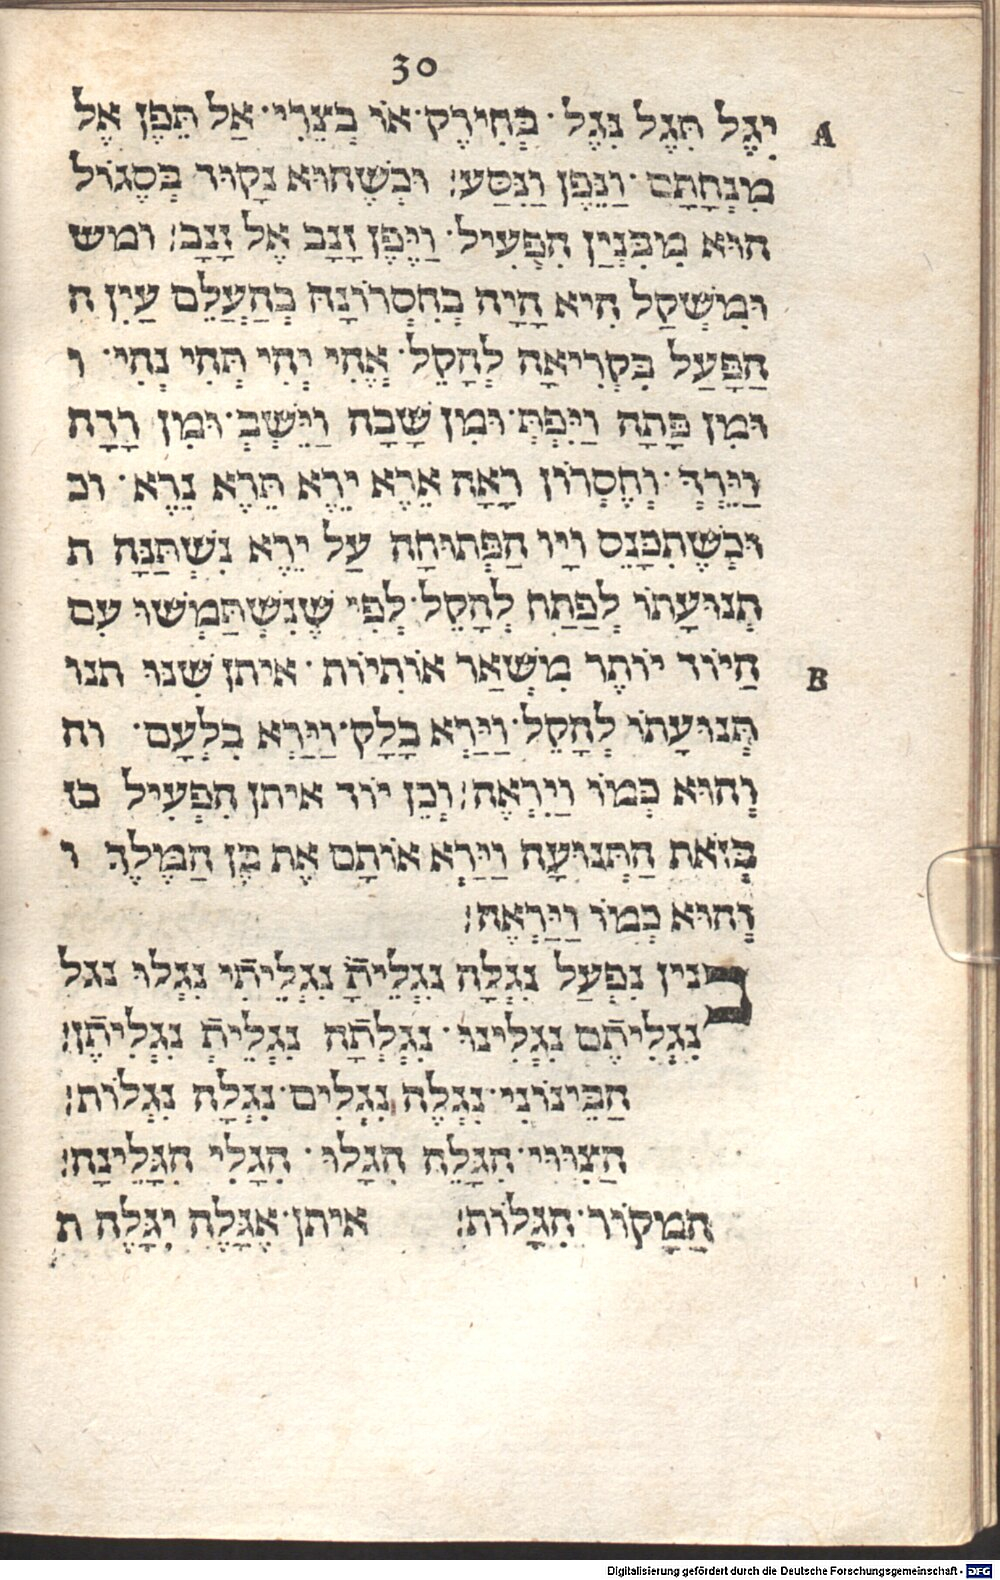 30
יִגֶל תִּגֶל נִגֶל · בְּחִירֶק · אוֹ בְצֵרִי · אַל תֵּפֶן אֶל A
מִנְחָתָם · וַנֵּפֶן וַנִּסַּע׃ וּכְשֶׁהוּא נָקוּד בְּסֶגוֹל
הוּא מִבִּנְיַן הִפְעִיל · וַיֶּפֶן זָנָב אֶל זָנָב׃ ומש
וּמִשְׁקַל הִיא הָיָה בְחִסְרוֹנָהּ בְּהַעֲלֵם עַיִן ה
הַפָּעַל בִּקְרִיאָה לְהָקֵל · אֱהִי יְהִי תְּהִי נְהִי · ו
וּמִן פָּתָה וַיִּפְתְּ · וּמִן שָׁבָה וַיִּשְׁבְּ · וּמִן רָדָה
וַיֵּרְדְּ · וְחֶסְרוֹן רָאָה אֵרֶא יֵרֶא תֵּרֶא נֵרֶא · וכ
וּכְשֶׁתִּכָּנֵס וָיו הַפְּתוּחָה עַל יֵרֶא נִשְׁתַּנָּה ת
תְנוּעָתוֹ לְפַתַח לְהָקֵל · לְפִי שֶׁנִשְׁתַּמְשׁוּ עִם
הַיּוֹד יוֹתֶר מִשְּׁאַר אוֹתִיּוֹת · איתן שִׁנּוּ תנו B
תְּנוּעָתוֹ לְהָקֵל · וַיַּרְא בָּלָק · וַיַּרְא בִלְעָם · וה
וְהוּא כְּמוֹ וַיִרְאֶה׃ וְכֵן יוֹד איתן הִפְעִיל כז
כְּזֹאת הַתְּנוּעָה וַיַּרְא אוֹתָם אֶת בֶּן הַמֶּלֶךְ ו
וְהוּא כְּמוֹ וַיַּרְאֶה׃
בנין נִפְעַל נִגְלָה נִגְלֵיתָ נִגְלֵיתִי נִגְלוּ נגל
נִגְלִיתֶם נִגְלִינוּ · נִגְלְתָה נִגְלֵית נִגְלִיתֶן׃
הַבֵּינוֹנִי · נִגְלֶה נִגְלִים · נִגְלָה נִגְלוֹת׃
הַצִוּוּי · הִגָּלֵה הִגָּלוּ · הִגָּלִי הִגָּלֵינָה׃
הַמָּקוֹר · הִגָּלוֹת׃ איתן · אֶגָּלֶה יִגָּלֶה ת
Digitalisierung gefördert durch die Deutsche Forschungsgemeinschaft - DFG